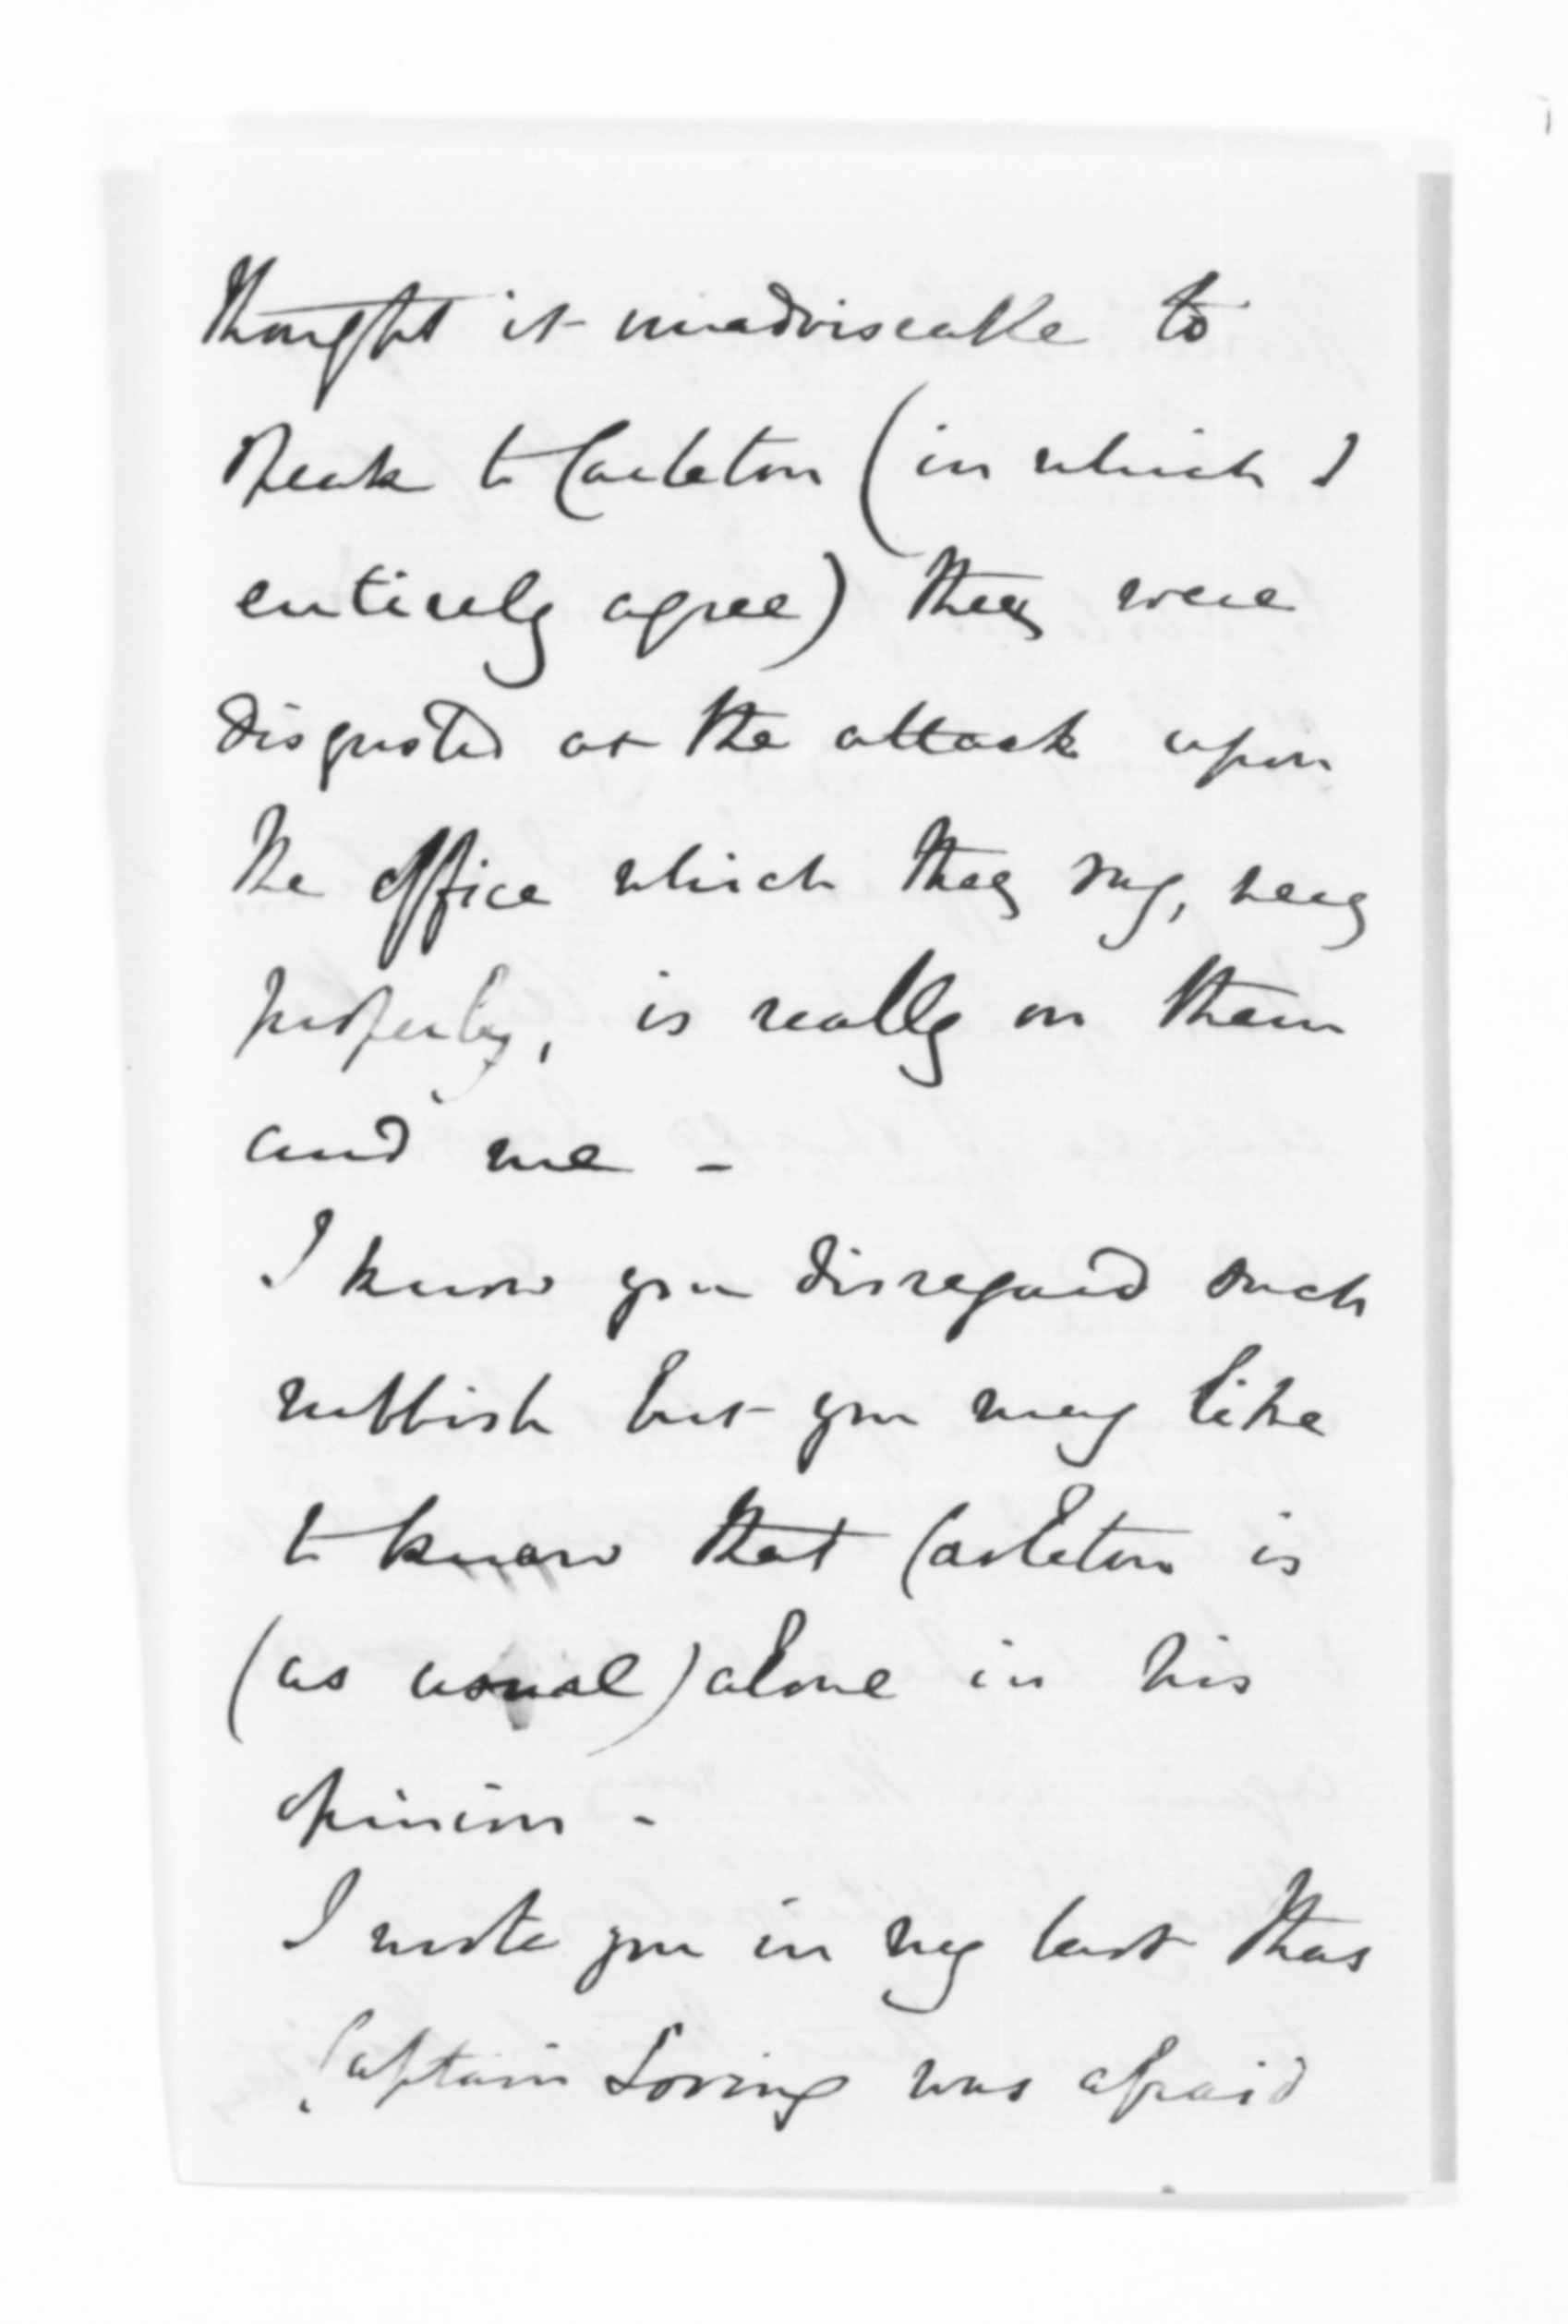 thought it inadviseable to
speak to Carleton (in which I
entirely agree) they were
disgusted at the attack upon
the office which they say, very
properly, is really on them
and me -
I know you disregard such
rubbish but you may like
to know that Carleton is
(as usual) alone in his
opinion -
I wrote you in my last that
Captain Loring was afraid